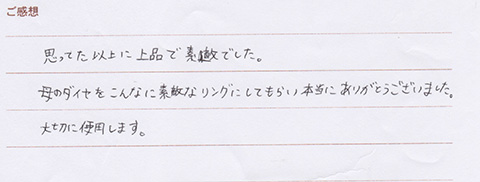 ご感想
思ってた以上に上品で素敵でした。
母のダイヤをこんなに素敵なリングにしてもらい本当にありがとうございました。
大切に使用します。